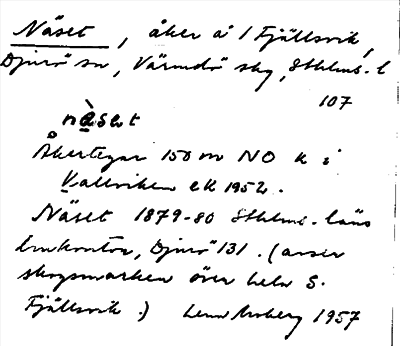 Näset, åker å 1 Fjällsvik,
Djurö sn, Värmdö skg, Sthlms. l
107
nä̀set
Åkertegar 150 m NO k i
Vallviken ek 1952.
Näset 1879-80 Sthlms. läns
lmkontor, Djurö 131. (avser
skogsmarken över hela S.
Fjällsvik.) 1957